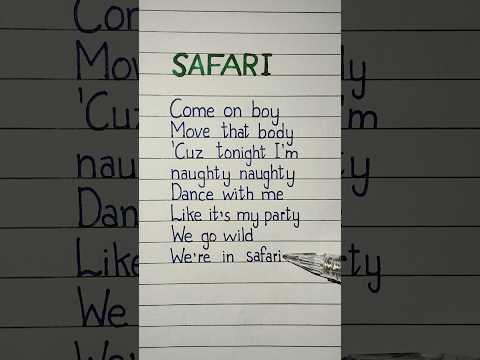 SAFARI
Come on boy
Move that body
'Cuz tonight I'm
naughty naughty
Dance with me
Like it's my party
We go wild
We're in safari